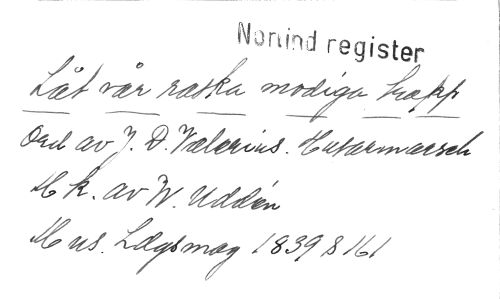 Norlind register
Låt vår raska modiga tropp
Ord av J. D. Valerius. Husarmarsch
Mk. av W. Uddén
Mus. Ldgsmag 1839 s 161